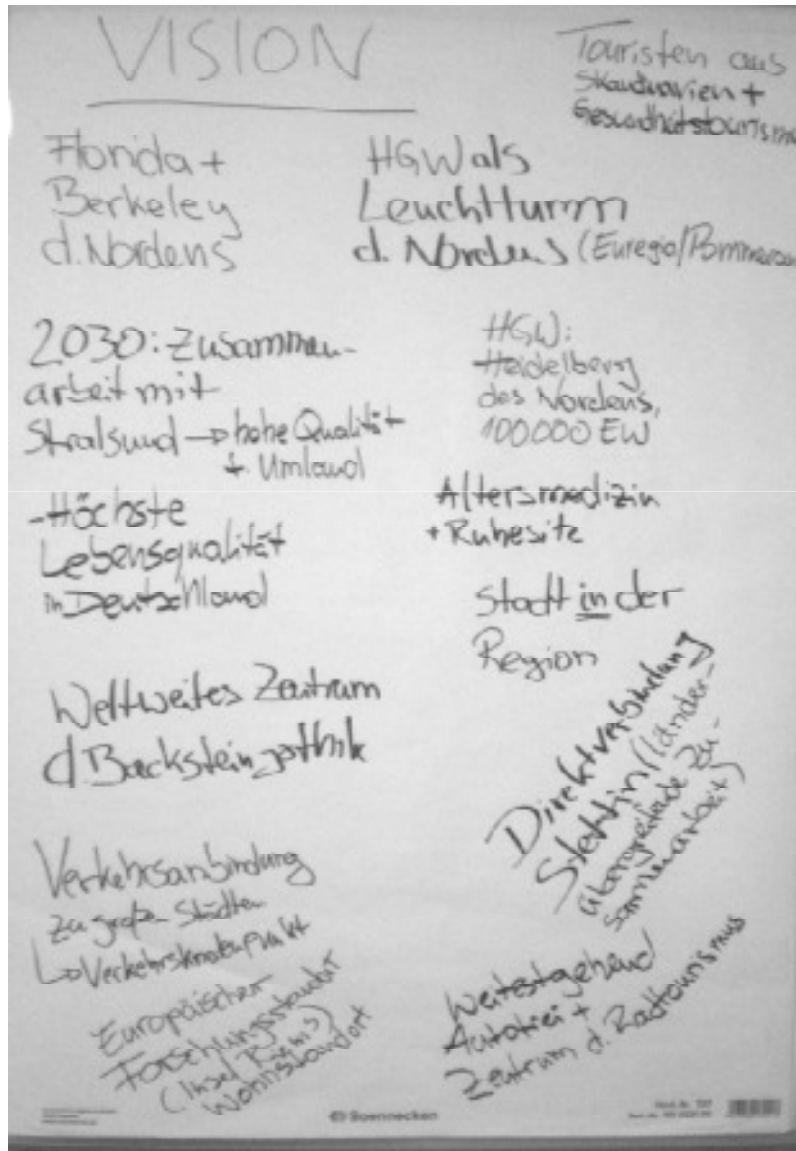 VISION
Touristen aus
Skandinavien +
Gesundheitstourismus
Florida +
Berkeley
d. Nordens
HGW als
Leuchtturm
d. Nordens (Euregio/Pommerania
2030: Zusammen-
arbeit mit
Stralsund → hohe Qualität
+ Umland
HGW:
Heidelberg
des Nordens,
100.000 EW
- Höchste
Lebensqualität
in Deutschland
Altersmedizin
+ Ruhesitz
Stadt in der
Region
Weltweites Zentrum
d. Backsteingothik
Direktverbindung
Stettin (länder-
übergreifende Zu-
sammenarbeit)
Verkehrsanbindung
zu großen Städten
↳ Verkehrsknotenpunkt
Europäischer
Forschungsstandort
(Insel Riems)
Wohnstandort
Weitestgehend
Autofrei +
Zentrum d. Radtourismus
Soennecken